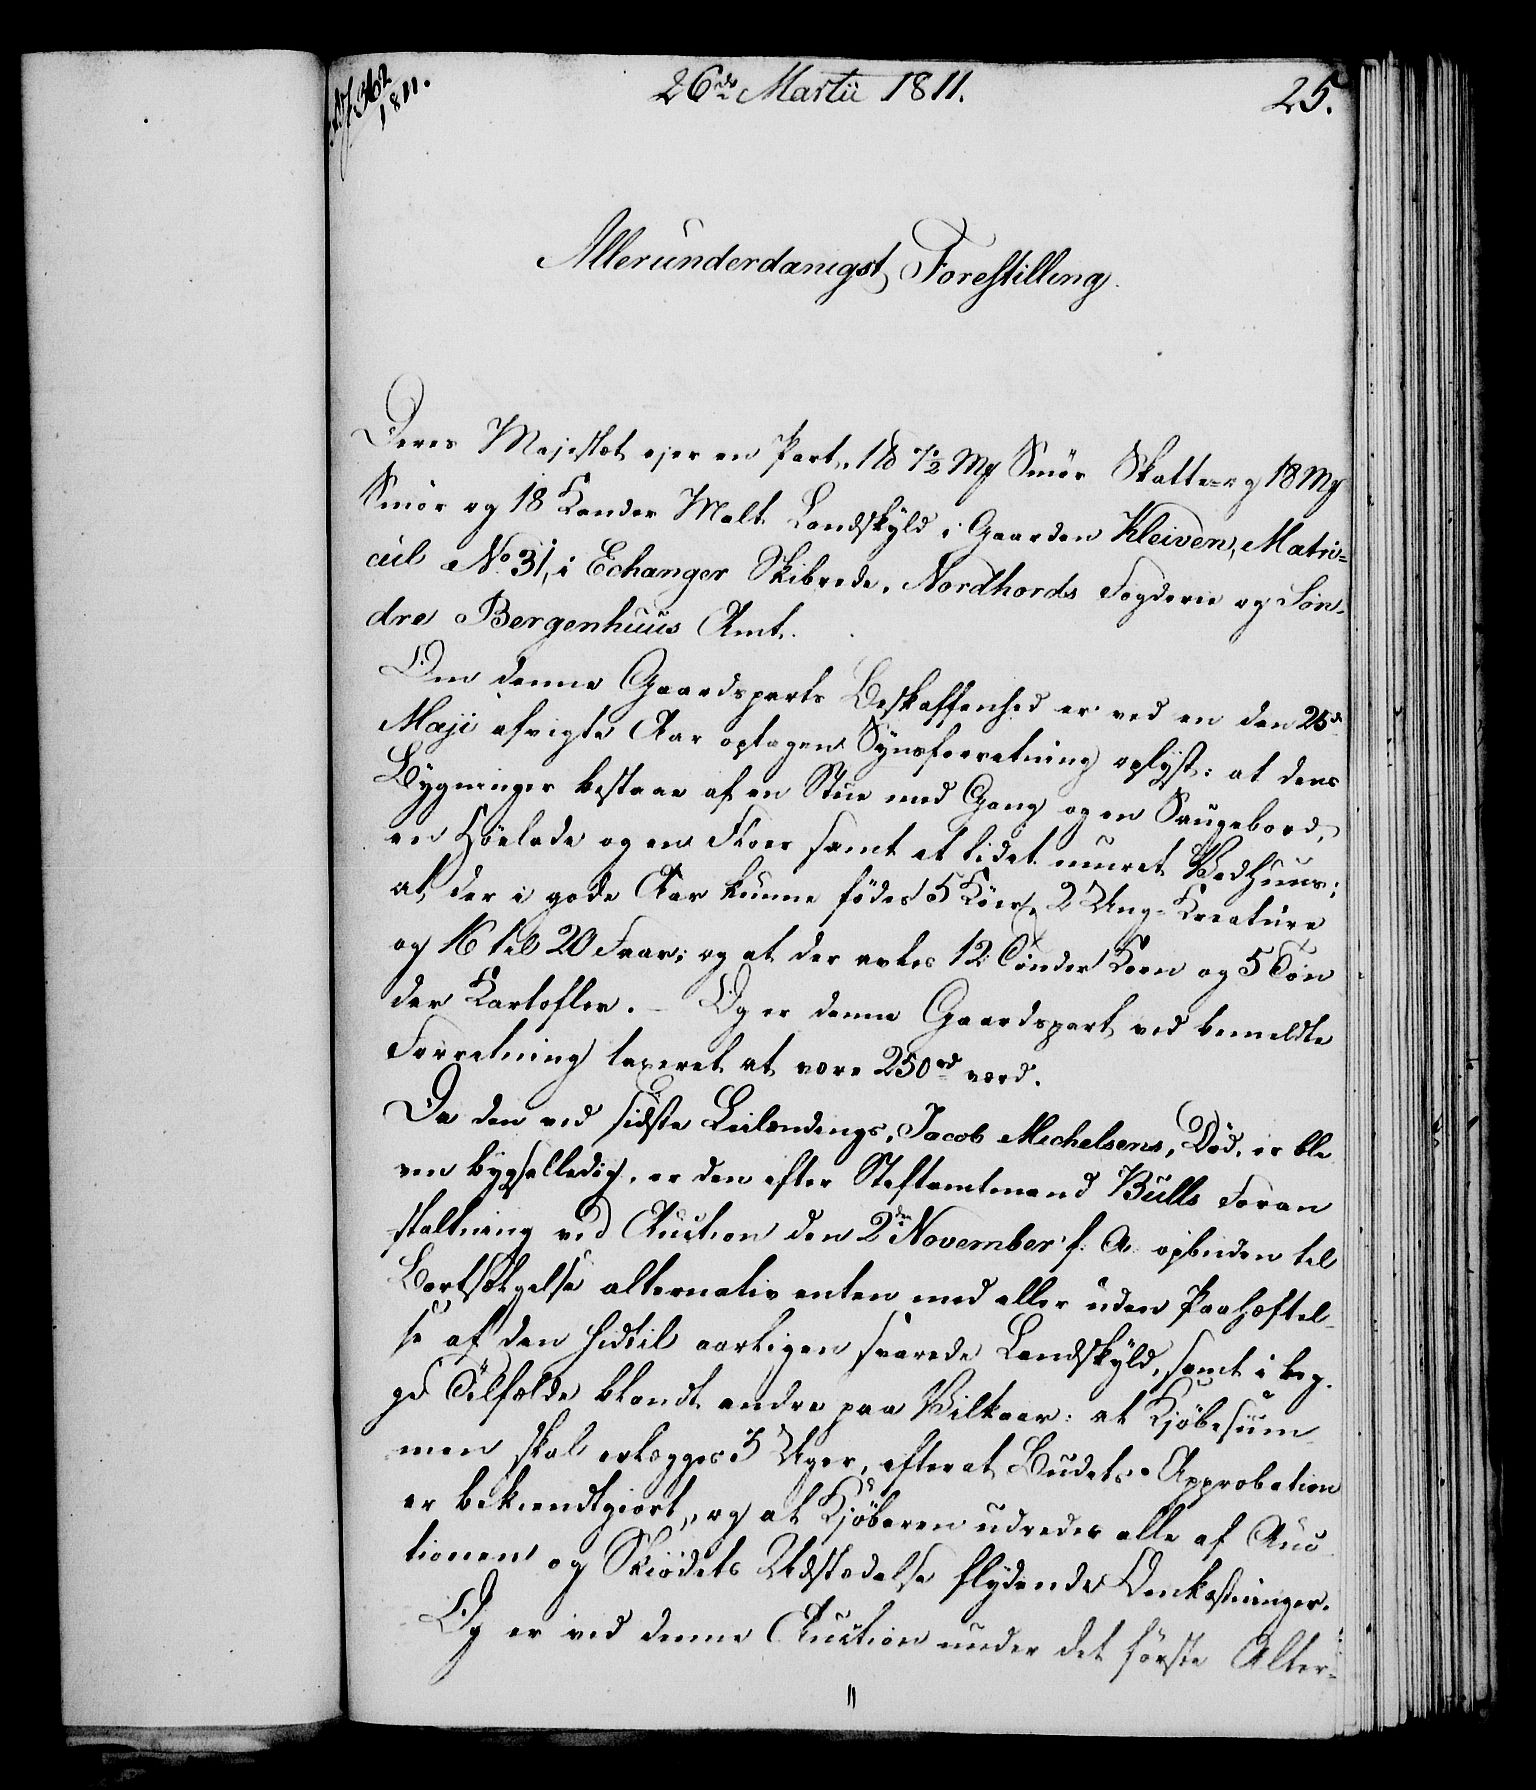 362
1811.
26de Martii 1811.
25.
Allerunderdanigst Forestilling.
Deres Majestæt ejer en Part, 1 ℔ 7½ Mg Smör Skatte- og 18 Mg
Smör og 18 Kander Malt Landskyld i Gaarden Kleiven, Matri=
cul No 31, i Echanger Skibrede, Nordhords Fogderie og Sön=
dre Bergenhuus Amt.
Om denne Gaardsparts Beskaffenhed er ved en den 25de
Maji afvigte Aar optagen Synsforretning oplyst: at dens
Bygninger bestaae af en Stue med Gang og en Saugebord,
en Höelade og en Floer samt et lidet muuret Vedhuus;
at der i gode Aar kunne födes 5 Köer, 2 Ung-Kreature
og 16 til 20 Faar; og at der avles 12 Tönder Korn og 5 Tön
der Kartofler. – Og er denne Gaardspart ved bemeldte
Forretning taxeret at være 250 rd værd.
Da den ved sidste Leilændings, Jacob Michelsens, Död, er ble
ven bygselledig, er den efter Stiftamtmand Bulls Foran
staltning ved Auction den 2den November f. A. opbuden til
Bortsælgelse alternativ enten med eller uden Paahæftel
se af den hidtil aarligen svarede Landskyld, samt i beg=
ge Tilfælde blandt andre paa Vilkaar: at Kjöbesum
men skal erlægges 3 Uger, efterat Budets Approbation
er bekiendtgiort, og at Kjöberen udreder alle af Auc
tionen og Skiödets Udstædelse flydende Omkostninger.
Og er ved denne Auction under det förste Alter=